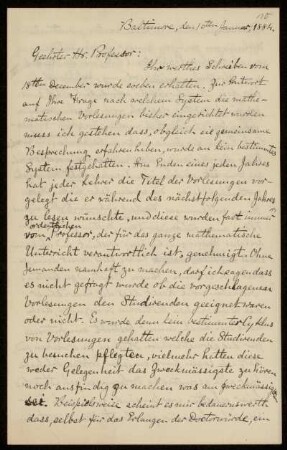 Baltimore, den 10ten Januar, 1884.
Geehrter Hr. Professor:
Ihr werthes Schreiben vom
18ten December wurde soeben erhalten. Zur Antwort
auf Ihre Frage nach welchem System die mathe-
matischen Vorlesungen bisher eingerichtet wurden
muss ich gestehen dass, obgleich sie gemeinsame
Besprechung erfahren haben, wurde an kein bestimmtes
System festgehalten. Am Ende eines jeden Jahres
hat jeder Lehrer die Titel der Vorlesungen vor-
gelegt die er während des nächstfolgenden Jahres
zu lesen wünschte, und diese wurden fast immer
ordentlichen
vom Professor, der für das ganze mathematische
Unterricht verantwortlich ist, genehmigt. Ohne
Jemanden namhaft zu machen, darf ich sagen dass
es nicht gefragt wurde ob die vorgeschlagenen
Vorlesungen den Studirenden geeignet waren
oder nicht. Es wurde denn kein bestimmter Cyklus
von Vorlesungen gehalten welche die Studirenden
zu besuchen pflegten, vielmehr hatten diese
weder Gelegenheit das Zweckmässigste zu hören
noch ausfindig zu machen was am zweckmässigsten
sei. Beispielsweise scheint es mir bedauernswerth
dass, selbst für das Erlangen der Doctorwürde, ein